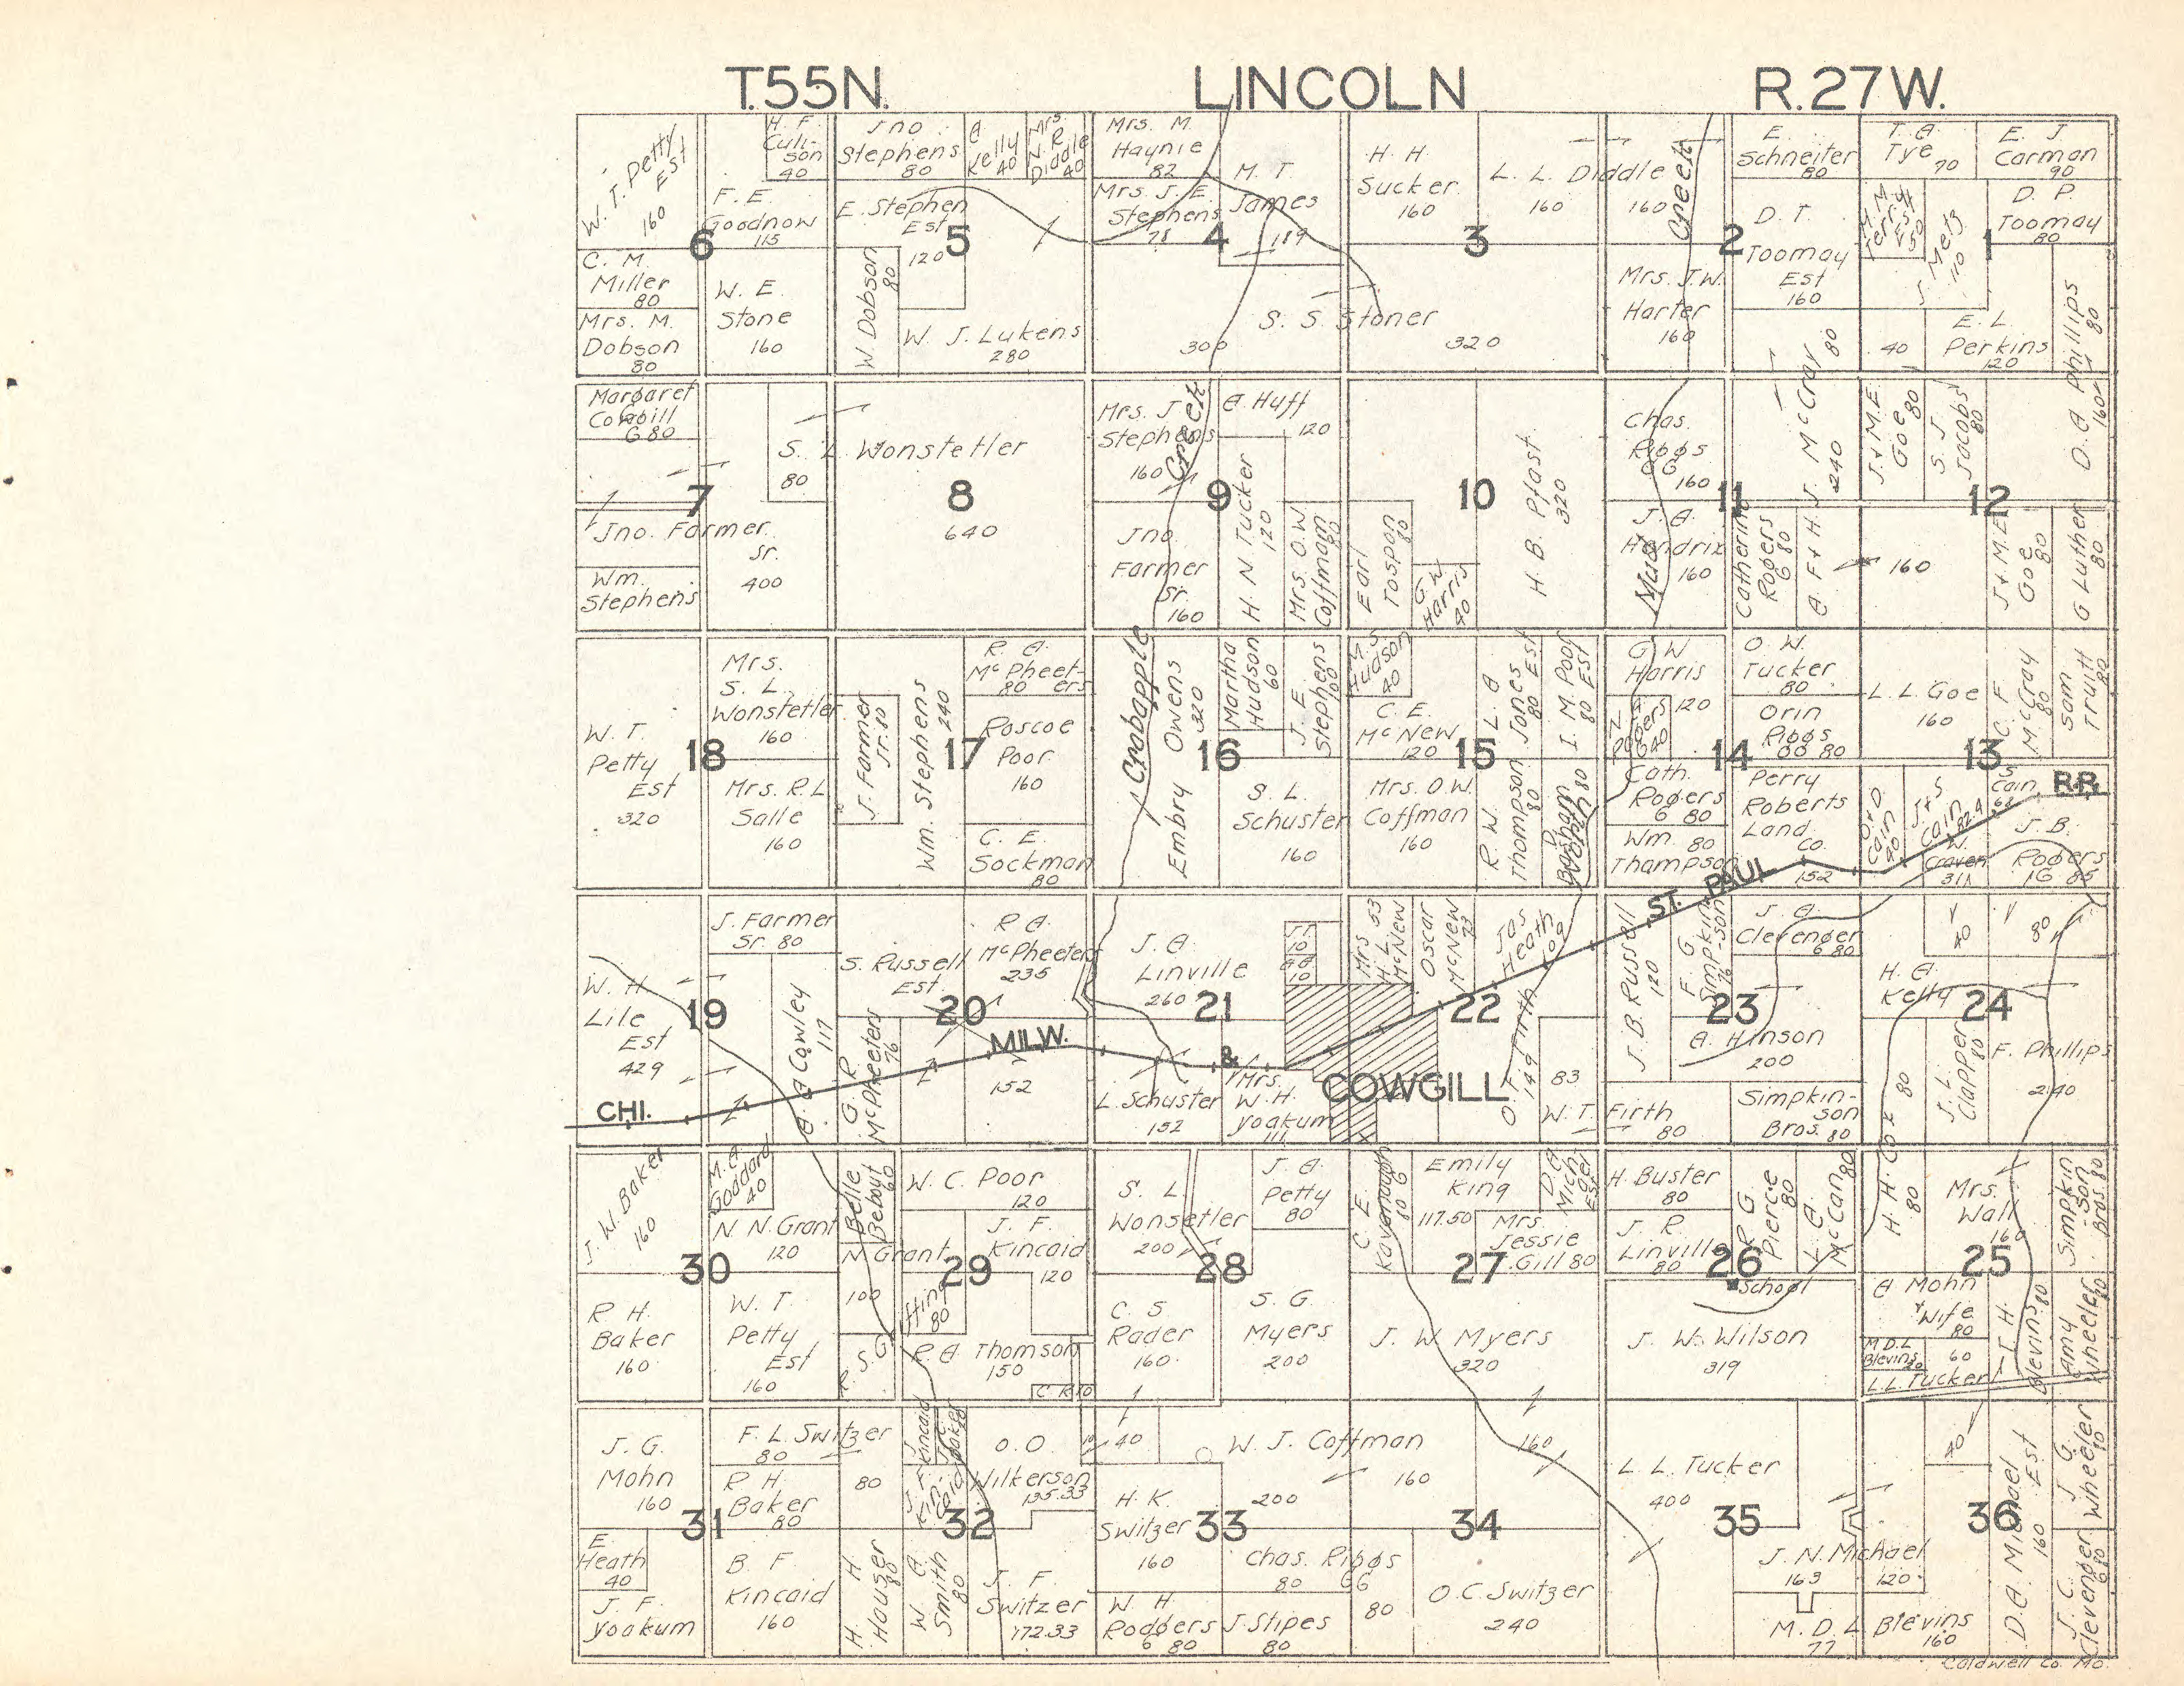 T.55N. LINCOLN R.27W.
W. T. Petty Est 160
H. F. Culison 40
F. E. Goodnow 115
6
C. M. Miller 80
Mrs. M. Dobson 80
W. E. Stone 160
Jno Stephens 80
A Kelly 40
Mrs. N. R. Diddle 40
E. Stephen Est 120
5
W Dobson 80
W. J. Lukens 280
Mrs. M. Haynie 82
Mrs. J. E. Stephens 78
M. T. James 189
4
S. S. Stoner
300
320
H. H. Sucker 160
L. L. Diddle
160
160
3
Creek
E. Schneiter 80
D. T. Toomay Est 160
2
Mrs. J. W. Harter 160
T. A. Tye 70
E. J. Carman 90
M. M. Terry Est 50
J Metz 110
D. P. Toomay 80
1
80
40
E. L. Perkins 120
D. A Phillips
80
160
Margaret Cowgill
G 80
7
S. L. Wonstetler
80
8
640
Jno. Farmer Sr. 400
Wm. Stephens
Mrs. J Stephens 160
Creek
A. Huff 120
9
H. N Tucker 120
Mrs. O. W Coffman 80
Jno. Farmer Sr. 160
Earl Tospon 80
10
G. W Harris 40
H. B. Pfost 320
Chas. Riggs
160
11
J. A. Hendrix 160
Mud
Catherine Rogers
G 80
A F & H J. McCray
240
160
J. & M. E. Goe 80
S. J Jacobs 80
12
J. & M. E Goe 80
G Luther 80
W. T. Petty Est 320
18
Mrs. S. L. Wonstetler 160
Mrs. R. L Salle 160
J. Farmer Jr. 80
Wm. Stephens 240
17
R. A. McPheeters 80
Roscoe Poor 160
C. E. Sockman 80
Crabapple
Embry Owens 320
16
Martha Hudson 60
J. E Stephens 100
S. L. Schuster 160
M. S Hudson 40
C. E. McNew 120
15
Mrs. O. W. Coffman 160
L. A Jones Est 80
I. M. Poor Est 80
R. W. Thompson 80
G W Harris 120
14
Cath. Rogers
G 80
Wm. Thampson 80
O. W. Tucker 80
Orin Riggs 80
Perry Roberts Land Co. 152
L. L Goe 160
C. F McCray 80
Sam Truitt 80
13
O & D Cain 40
J & S Cain 82.4
S Cain
R.R.
W. Craven
J. B. Rogers
W. H Lile Est 429
19
J. Farmer Sr. 80
A A Cowley 117
CHI.
S. Russell Est.
R. A. McPheeters 235
20
G. R McPheeters 76
MILW.
152
J. A Linville 260
21
&
L. Schuster 152
Mrs. W. H. Yoakum
Mrs H. L McNew 53
Oscar McNew 73
Jas Heath
22
COWGILL
O. T Firth 149
83
W. T. Firth 80
ST. PAUL
J. B. Russell 120
F G Simpkin-son 76
23
J. A Clevenger
G 80
A. Hinson 200
Simpkin-son Bros. 80
40
80
H. A. Kelly
24
J. L. Clapper 80
F. Phillips 240
H. H. Cox
80
80
J. W. Baker 160
M. A Goddard 40
N N. Grant 120
30
R H. Baker 160
W. T. Petty Est 160
Belle Bebout 60
N Grant
100
W. C. Poor 120
J. F. Kincaid 120
29
R. A Thomson 150
S. L. Wonsetler 200
J. A. Petty 80
28
C. S Rader 160
S. G. Myers 200
C. E Kavenaugh 80
Emily King 117.50
D. A Michael Est
27
Mrs. Jessie Gill 80
J. W. Myers 320
H. Buster 80
J. R Linville 80
R. G. Pierce 80
L. A. McCan 80
26
School
J. W. Wilson 319
Mrs. Wall 160
Simpkin son Bros. 80
25
A Mohn & Wife 80
60
M D L Blevins
L. L. Tucker
I H. Blevins 80
Amy Wheeler 80
J. G. Mohn 160
31
E. Heath 40
J. F. Yoakum
F. L. Switzer
80
80
R H. Baker 80
B F Kincaid 160
J. F Kincaid
O. O. Wilkerson 135.33
32
H. H Hauser 80
W A Smith 80
J. F. Switzer 172.33
40
W. J. Coffman
200
160
160
H. K. Switzer 160
33
Chas. Riggs
80
80
W H Rodgers
G 80
J. Stipes 80
34
O. C. Switzer 240
L L. Tucker 400
35
J. N. Michael
163
120
M. D. L Blevins
77
160
40
36
D. A. Michael Est 160
J G. Wheeler 80
J. C Clevenger
G 80
Caldwell Co. Mo.